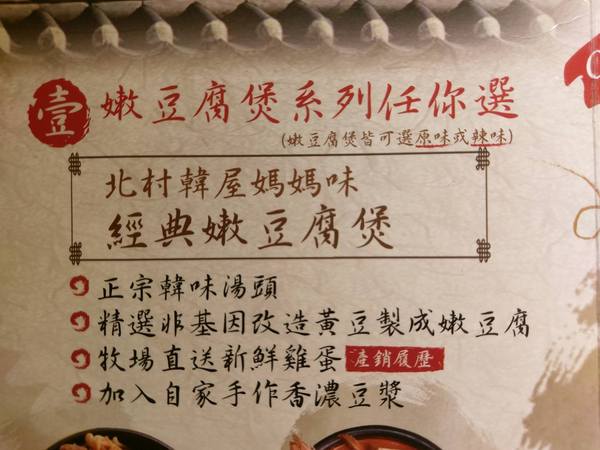 壹 嫩豆腐煲系列任你選
(嫩豆腐煲皆可選原味或辣味)
北村韓屋媽媽味
經典嫩豆腐煲
正宗韓味湯頭
精選非基因改造黃豆製成嫩豆腐
牧場直送新鮮雞蛋 產銷履歷
加入自家手作香濃豆漿